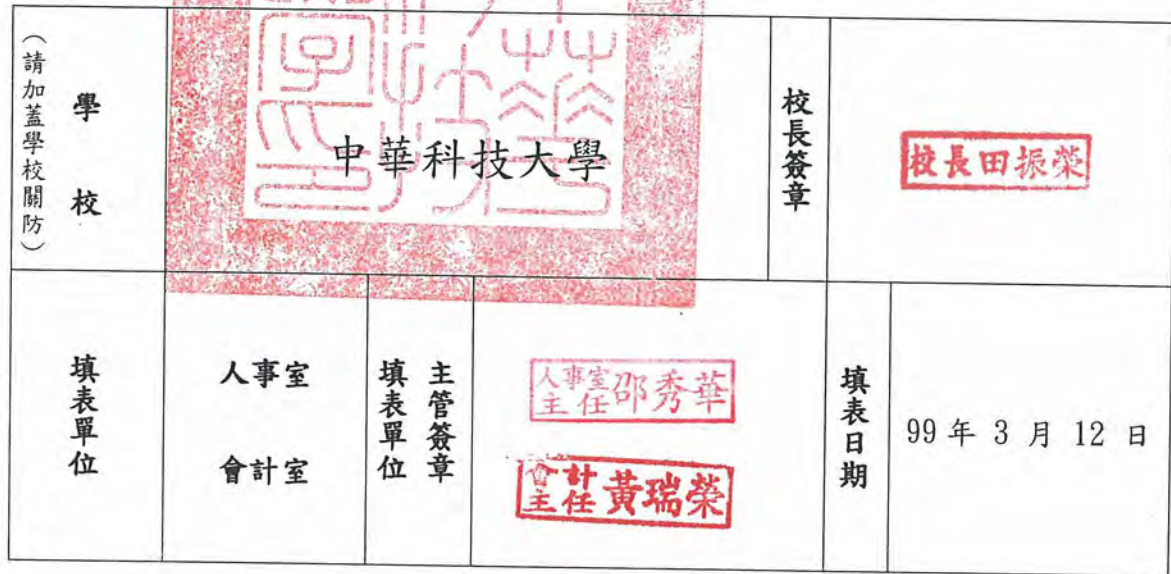 學校
（請加蓋學校關防）
中華科技大學
校長簽章
校長田振榮
填表單位
人事室
會計室
填表單位
主管簽章
人事室主任邵秀華
會計主任黃瑞榮
填表日期
99 年 3 月 12 日